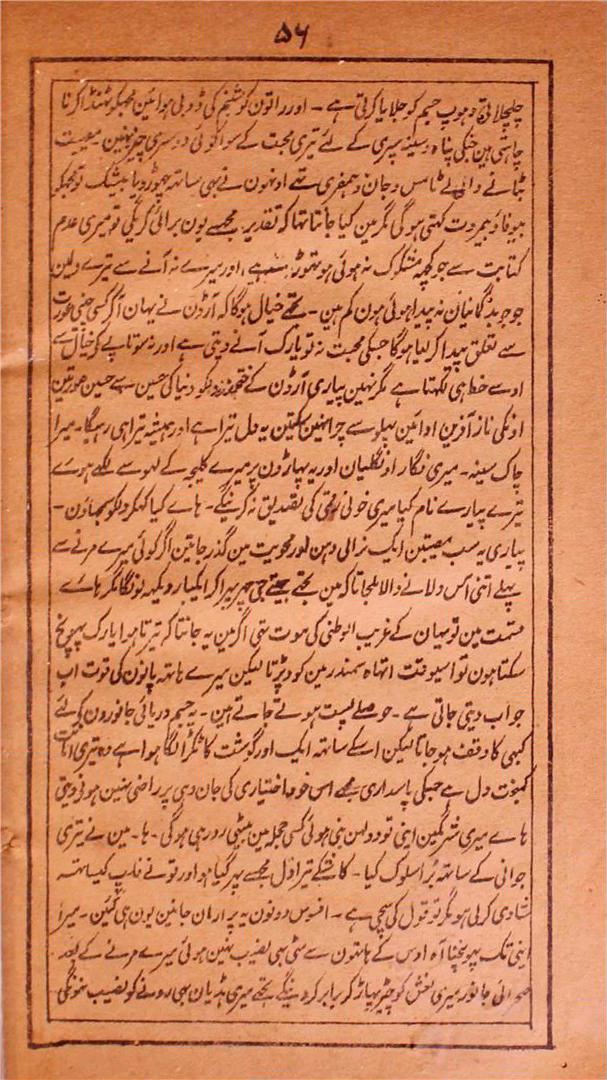 ۵۶
چلچلاتی دہوپ جسم کو جلایا کرتی ہے ۔ اور راتون کو شبنم کی ڈوبی ہوائین مجھکو ٹھنڈا کرنا
چاہتی ہین جنکی پناہ کے لئے تیری محبت کے سوا کوئی دوسری چیز نہین ۔ مصیبت
بٹانے والے ٹامس وجان وہمفری تھے اونہون نے بھی ساتھ چھوڑ دیا بیشک تو مجھکو
بیوفا و بیمروت کہتی ہوگی مگر مین کیا جانتا تھا کہ تقدیر مجھسے یون برائی کریگی تو میری عدم
کتابت سے جو کچھ مشکوک نہ ہوئی ہو تھوڑا ہے ، اور میرے نہ آنے سے تیرے دلمین
جو جو بدگمانیان نہ پیدا ہوئی ہون کم ہین ۔ تجھے خیال ہوگا کہ آرڈن نے یہان آکر کسی عورت
سے تعلق پیدا کر لیا ہوگا جسکی محبت نہ تو یارک آنے دیتی ہے اور نہ کے خیال سے
اوسے خط ہی لکھتا ہے مگر نہین پیاری آرڈن کے دلکو دنیا کی حسین سے حسین عورتین
اونکی ناز آفرین ادائین پہلو سے چرا نہین سکتین یہ دل تیرا ہے اور ہمیشہ تیرا ہی رہیگا ۔ میرا
چاک سینہ ۔ میری نگار اونگلیان اور یہ پہاڑون پر میرے کلیجہ کے لہو سے لکھے ہوے
تیرے پیارے نام کیا میری خونی کی تصدیق نہ کرینگے ۔ ہاے کیا کہکر دلکو سمجھاؤن ۔
پیاری یہ سب مصیبتین ایک نرالی دہن اور محویت مین گذر جاتین اگر کوئی میرے مرنے سے
پہلے اتنی آس دلانے والا ملجاتا کہ مین تجھے جیتے جی پھر ایکبار دیکھ لونگا مگر ہاے
قسمت مین تو یہان کے غریب الوطنی کی موت تھی اگر مین یہ جانتا کہ تیرتا ہوا یارک پہونچ
سکتا ہون تو اسیوقت اتھاہ سمندر مین کود پڑتا لیکن میرے ہاتھ پانون کی قوت اب
جواب دیتی جاتی ہے ۔ حوصلے پست ہوتے جاتے ہین ۔ یہ جسم دریائی جانورون کے لئے
کبھی کا وقف ہو جاتا لیکن اسکے ساتھ ایک اور گوشت کا ٹکڑا لگا ہوا ہے وہ تیری امانت
کمبخت دل ہے جسکی پاسداری مجھے اس خود اختیاری کی جان دہی پر راضی نہین ہونے دیتی
ہاے میری شرمگین اینی تو دولہن بنی ہوئی کسی حجلہ مین بیٹھی رو رہی ہوگی ۔ ہا ۔ مین نے تیری
جوانی کے ساتھ بُرا سلوک کیا ۔ کاشکے تیرا دل مجھسے پھر گیا ہو اور تو نے فلپ کے ساتھ
شادی کر لی ہو مگر تو قول کی سچی ہے ۔ افسوس دونون یہ پر ارمان جانین یون ہی گئین ۔ میرا
اینی تک پہونچنا آہ اوس کے ہاتھون سے مٹی بھی نصیب نہین ہوئی میرے مرنے کے بعد
صحرائی جانور میری نعش کو چیر پھاڑ کر برابر کر دینگے تجھے میری ہڈیان بھی رونے کو نصیب نہونگی